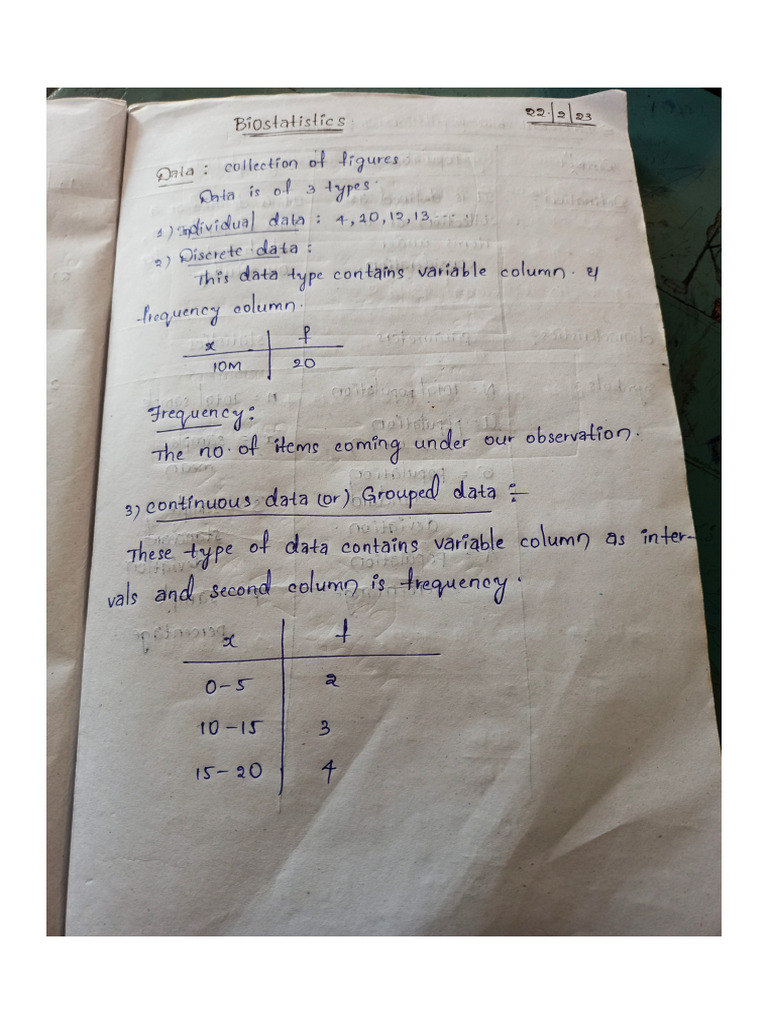 Biostatistics
22/2/23
Data : collection of figures
Data is of 3 types.
1) Individual data : 4, 20, 12, 13.
2) Discrete data :
This data type contains variable column. &
frequency column.
x f
10M 20
Frequency :
The no. of items coming under our observation.
3) continuous data (or) Grouped data :-
These type of data contains variable column as inter-
vals and second column is frequency.
x f
0-5 2
10-15 3
15-20 4